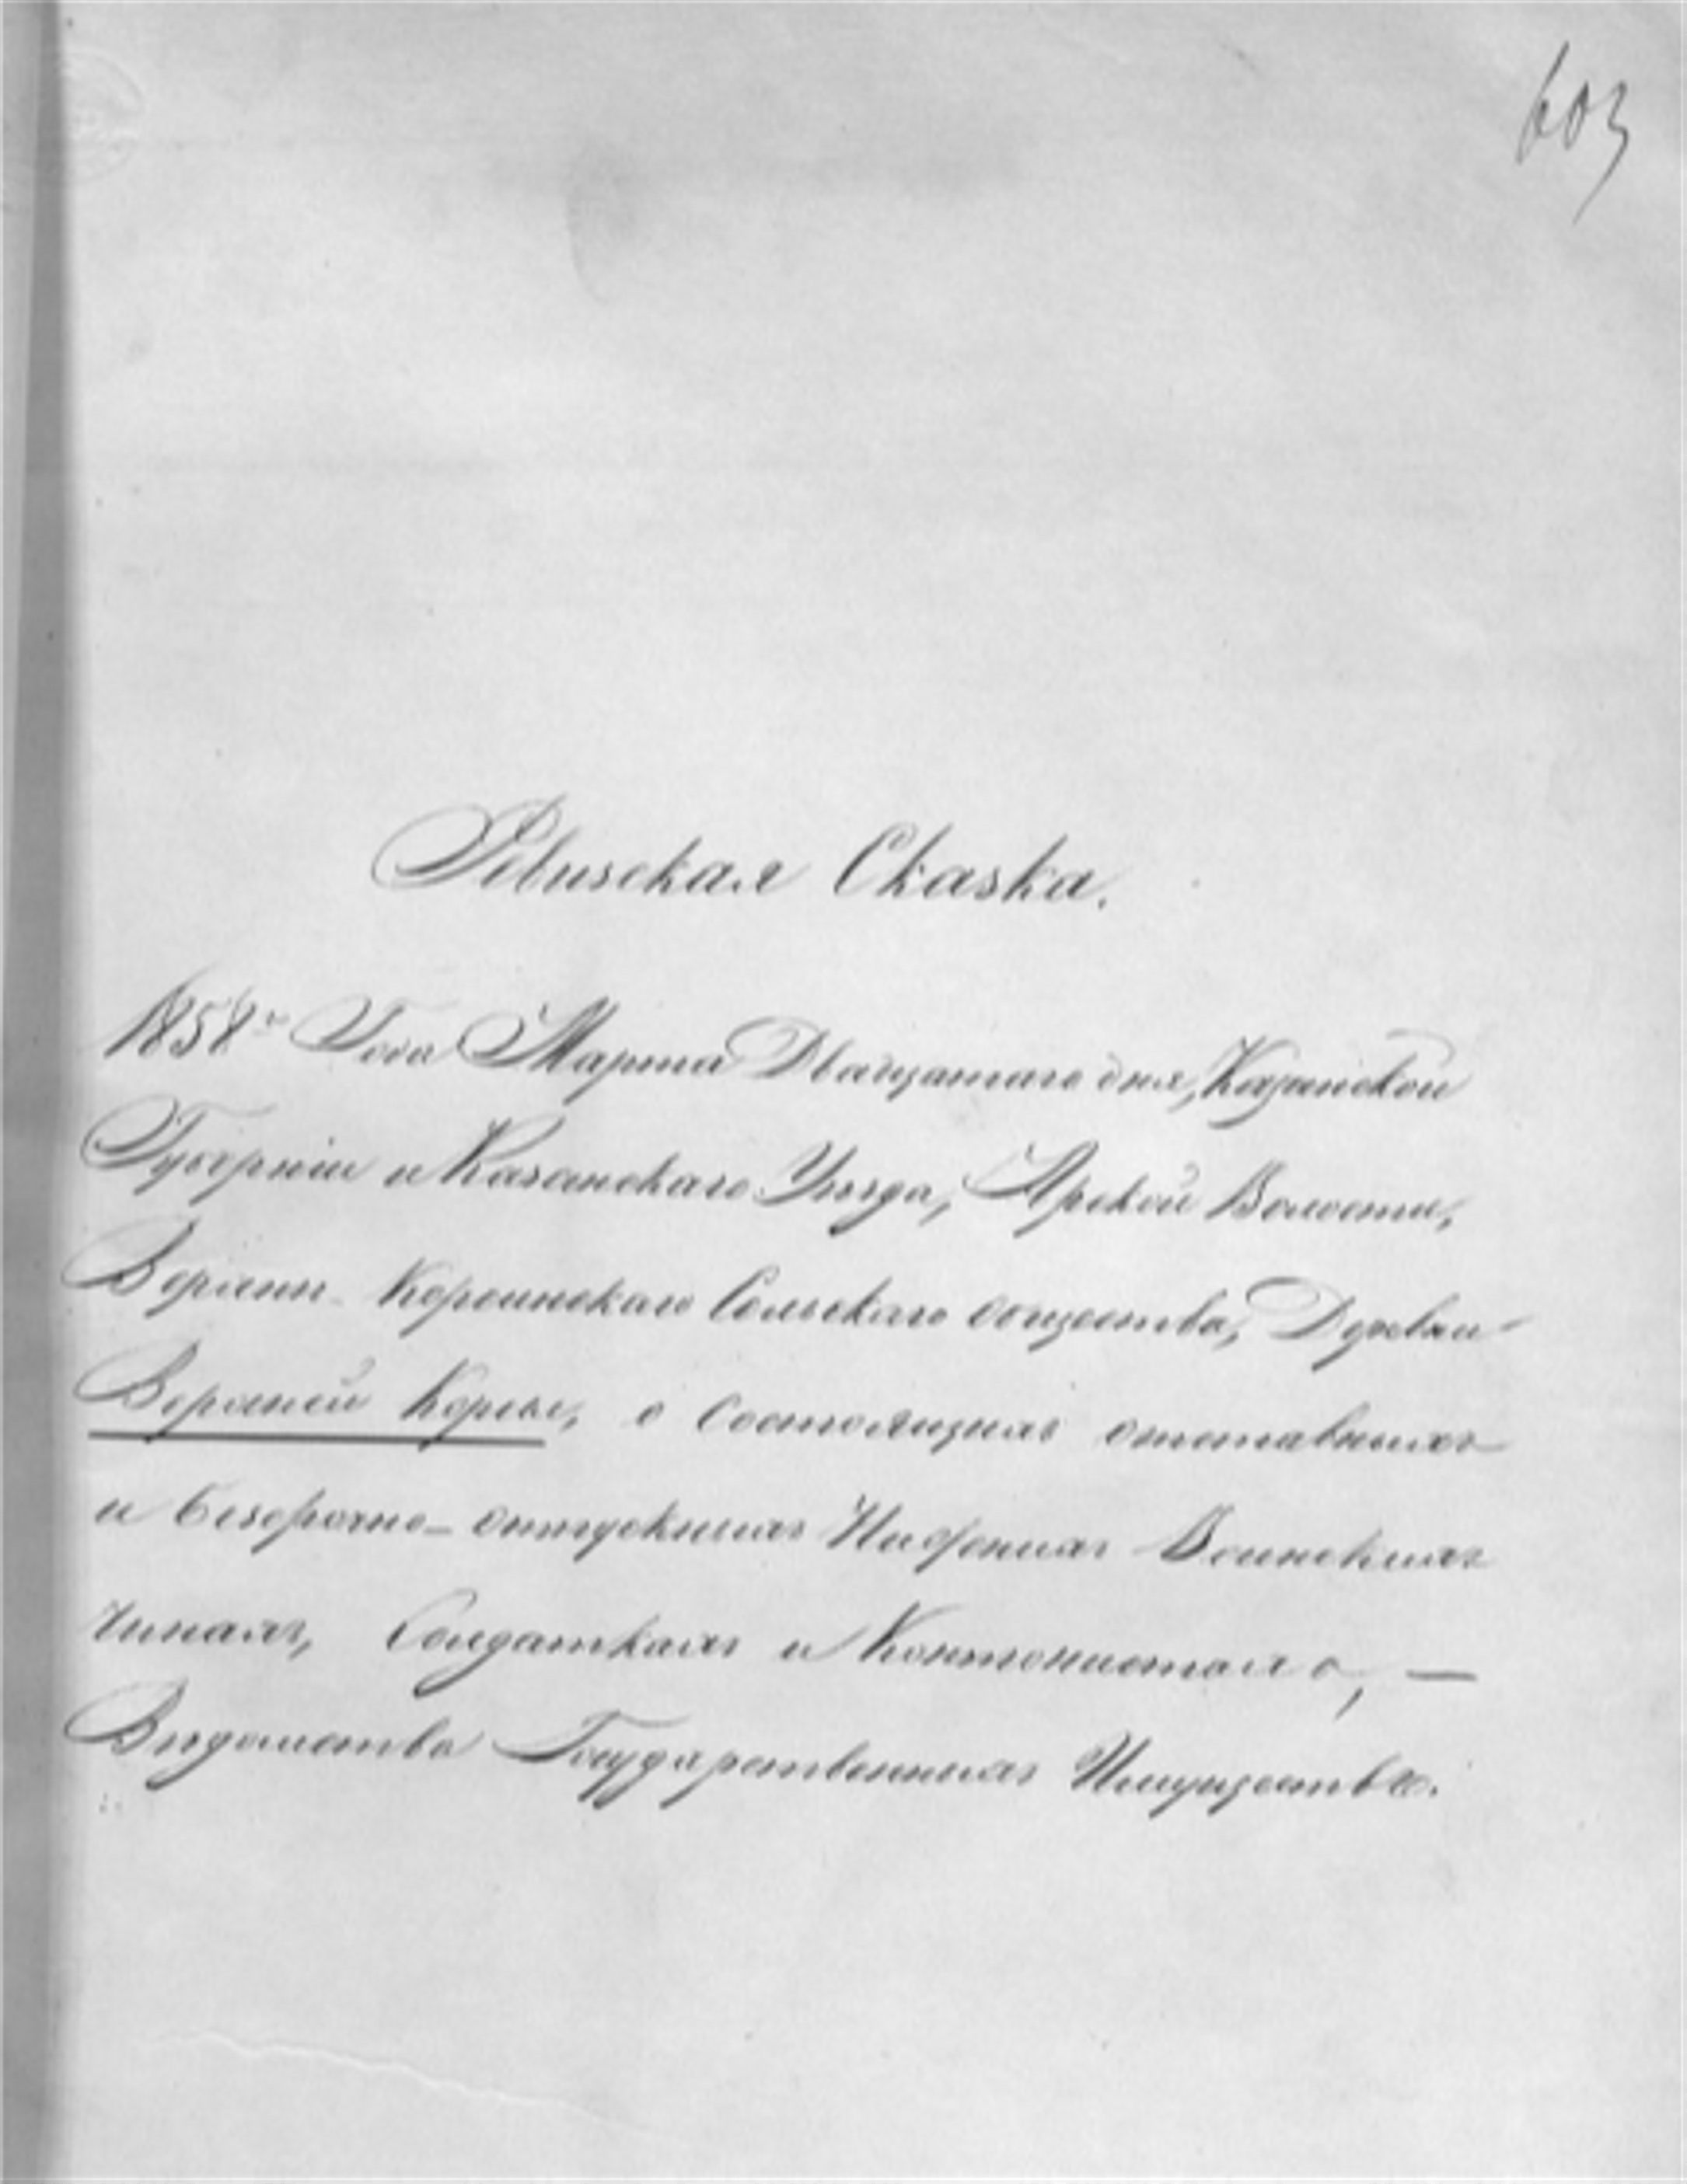 603
Ревизская Сказка.
1858го Года Марта Двадцатаго дня, Казанской
Губерніи и Казанскаго Уѣзда, Арской Волости,
Верхне-Корсинскаго Сельскаго общества, Деревни
Верхней Корсы, о состоящихъ отставныхъ
и безсрочно-отпускныхъ Нижнихъ Воинскихъ
Чинахъ, Солдаткахъ и Кантонистахъ, —
Вѣдомства Государственныхъ Имуществъ.